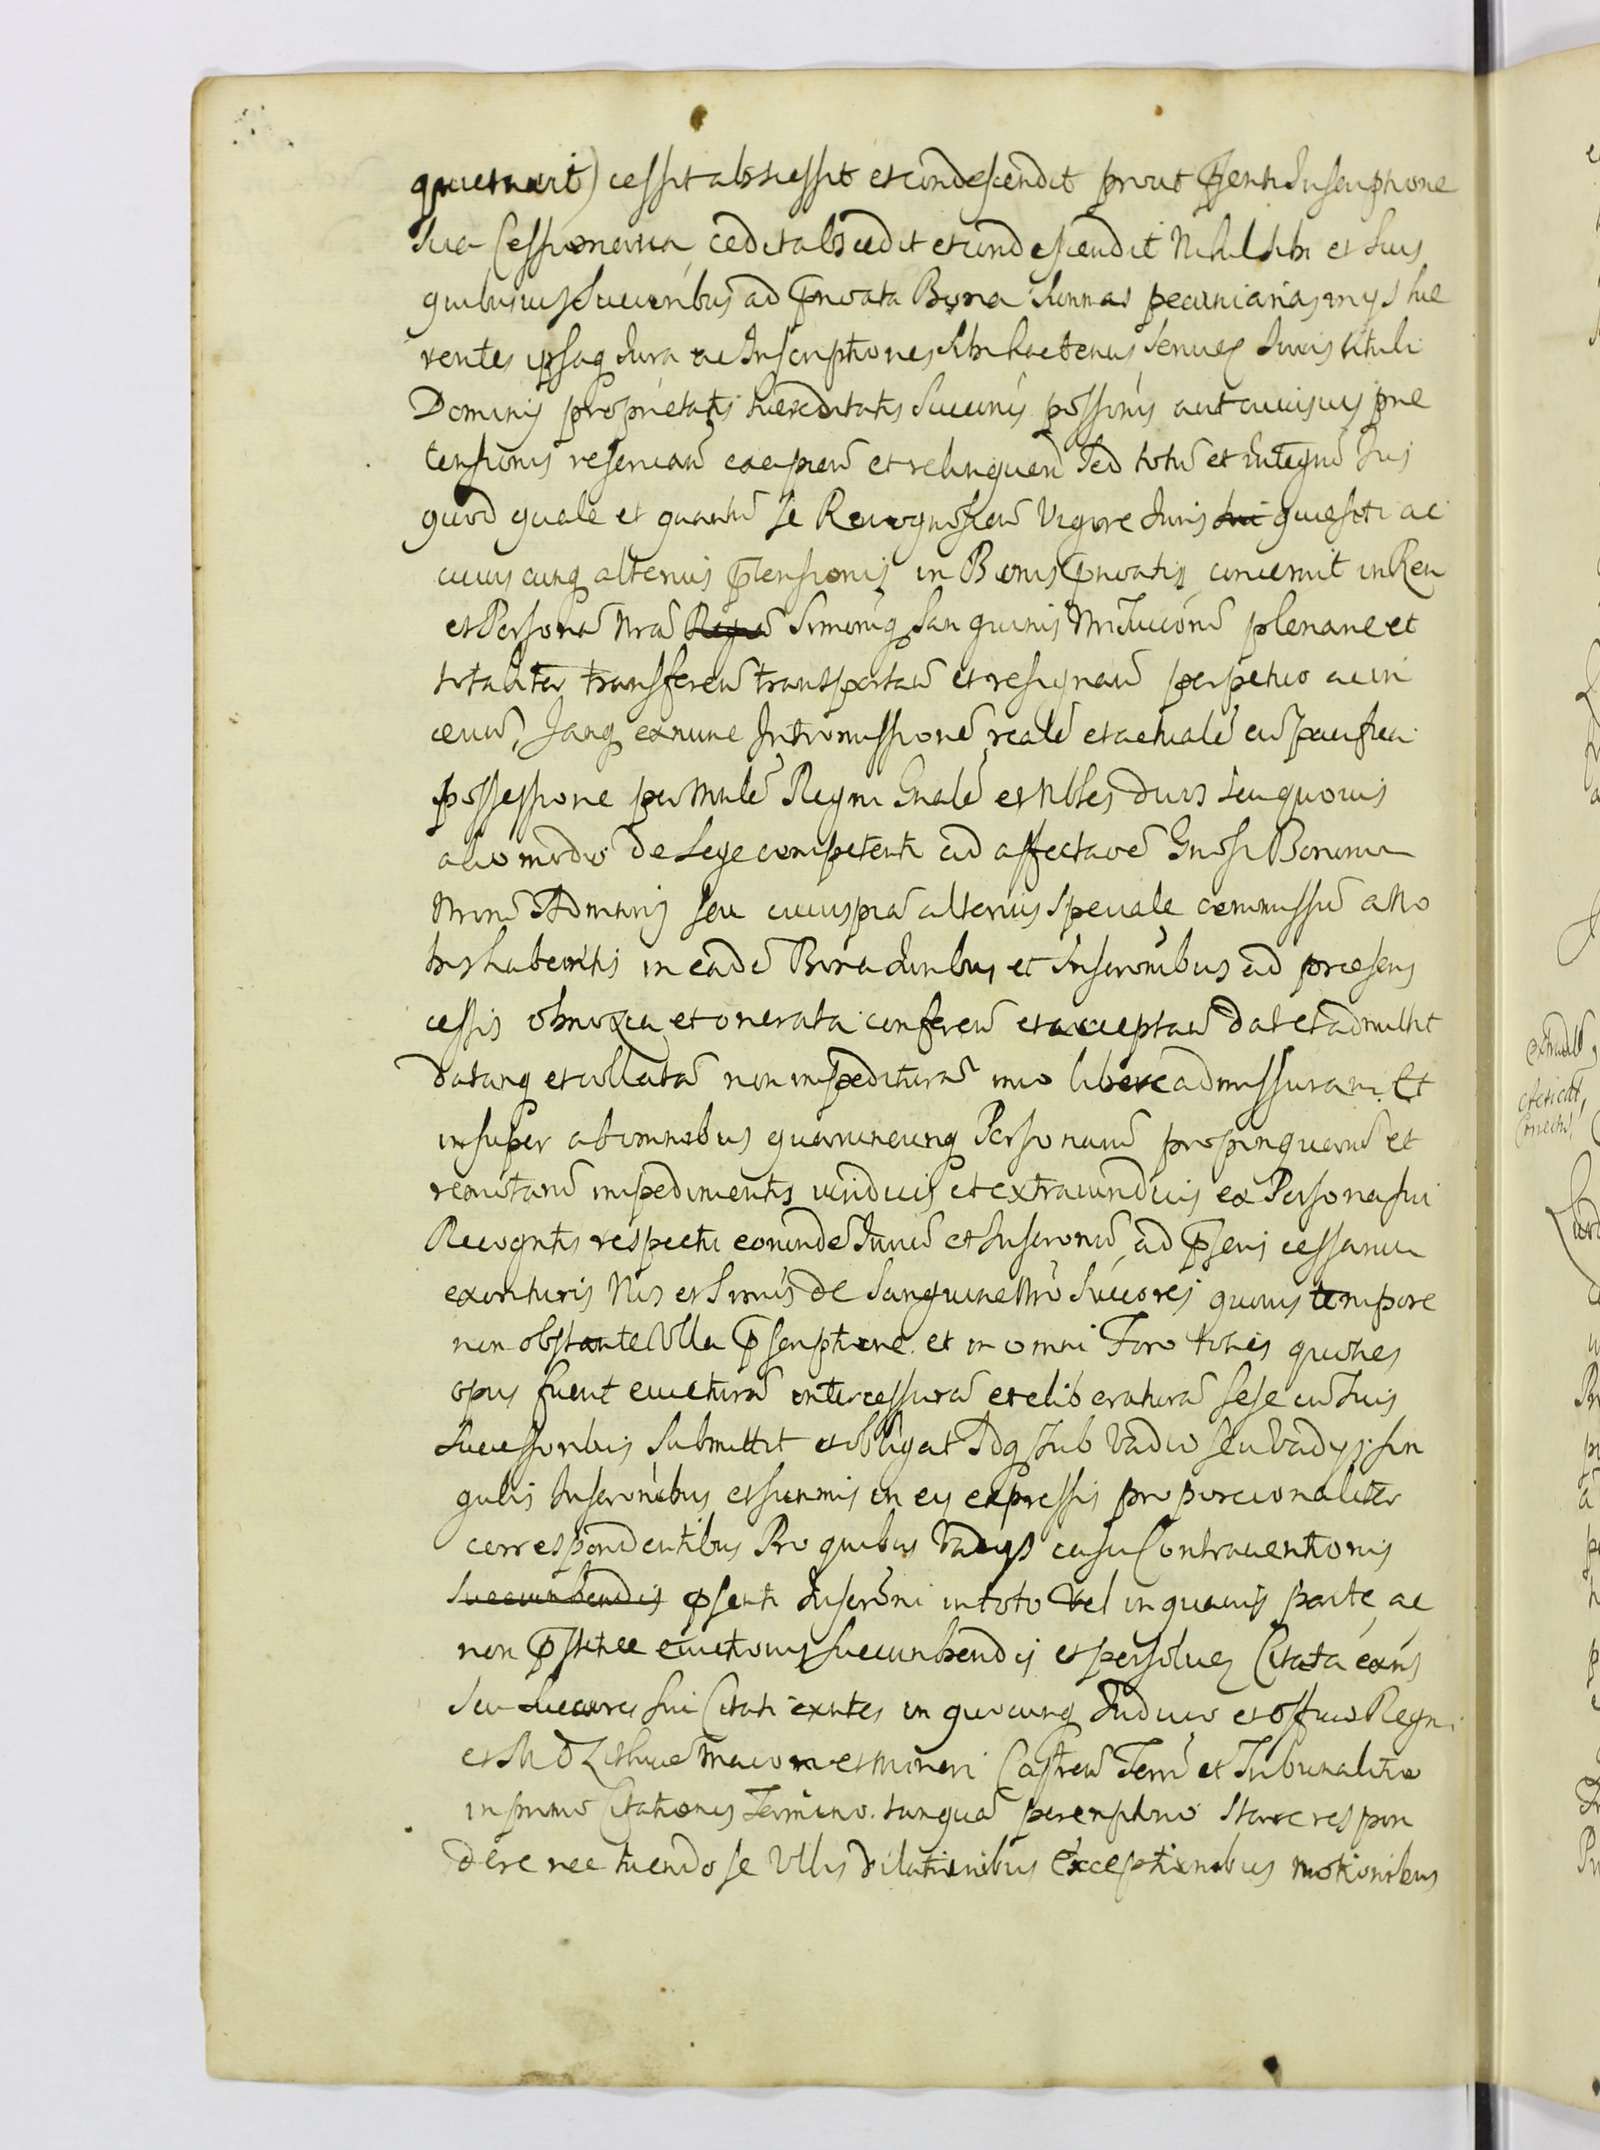 quietauit) cessit abscessit et condescendit prout pñti Inscriptione
sua Cessionaria cedit abscedit et condescendit Nihil sibi et suis
quibusuis Succoribus ad pnoata Bona Summas pecuniarias in ijs hae
rentes ipsaq Iura ac Inscriptiones sibi hactenus seruien Iuris tituli
Dominij proprietatis haereditatis Succonis possonis aut cuiusuis prae
tensionis reseruan excipien et relinquen Sed totu et integru Ius
quod quale et quantu se Recognoscen Vigore Iuris sui quaesiti ac
cuiuscunq alterius ptensionis in Bonis pnoatis concernit in Rem
et Persona Nra Simoruq Sanguinis Nri Succoru plenarie et
totaliter transferen transportan et resignan perpetuo ac in
aeuu, Iamq ex nunc Intromissione reale et actuale cu pacifica
possessione per Mnle Regni Gnale et Nbles duos seu quouis
alio modo de Lege competenti ad affectaoe Gnosi Bonorum
Nroru Admnris seu cuiuspia alterius speciale commissu a No
bis habentis in eade Bona Iuribus et Inscronibus ad praesens
cessis obnoxia et onerata conferen et acceptan dat et admittit
datamq et collata non impeditura imo libere admissuram Et
insuper ab omnibus quarumcunq Personaru propinquaru et
remotaru impedimentis iuriduis et extraiuriduis ex Persona sui
Recogntis respectu eorunde Iuriu et Inscronu ad psens cessarum
exorituris Nos et Srmos de Sanguine Nro Succores quouis tempore
non obstante Vlla pscriptione et in omni Foro toties quoties
opus fuerit euictura intercessura et eliberatura sese cu suis
Successoribus Submittit et obligat Idq sub Vadio seu Vadijs sin
gulis Inscronibus et summis in eis expressis proporcionaliter
correspondentibus Pro quibus Vadijs casu Contrauentionis
succumbendis psenti Inscroni in toto Vel in quauis parte, ac
non pstitae euictionis succumbendis et persoluen Citata exns
Seu Succores sui Citati exntes in quocunq Iudicio et officio Regni
et M D Lithuae maiori et minori Castren Terri et Tribunalitio
in primo Citationis Termino tanqua peremptorio stare respon
dere nec tuendo se Vllis dilationibus exceptionibus motionibus